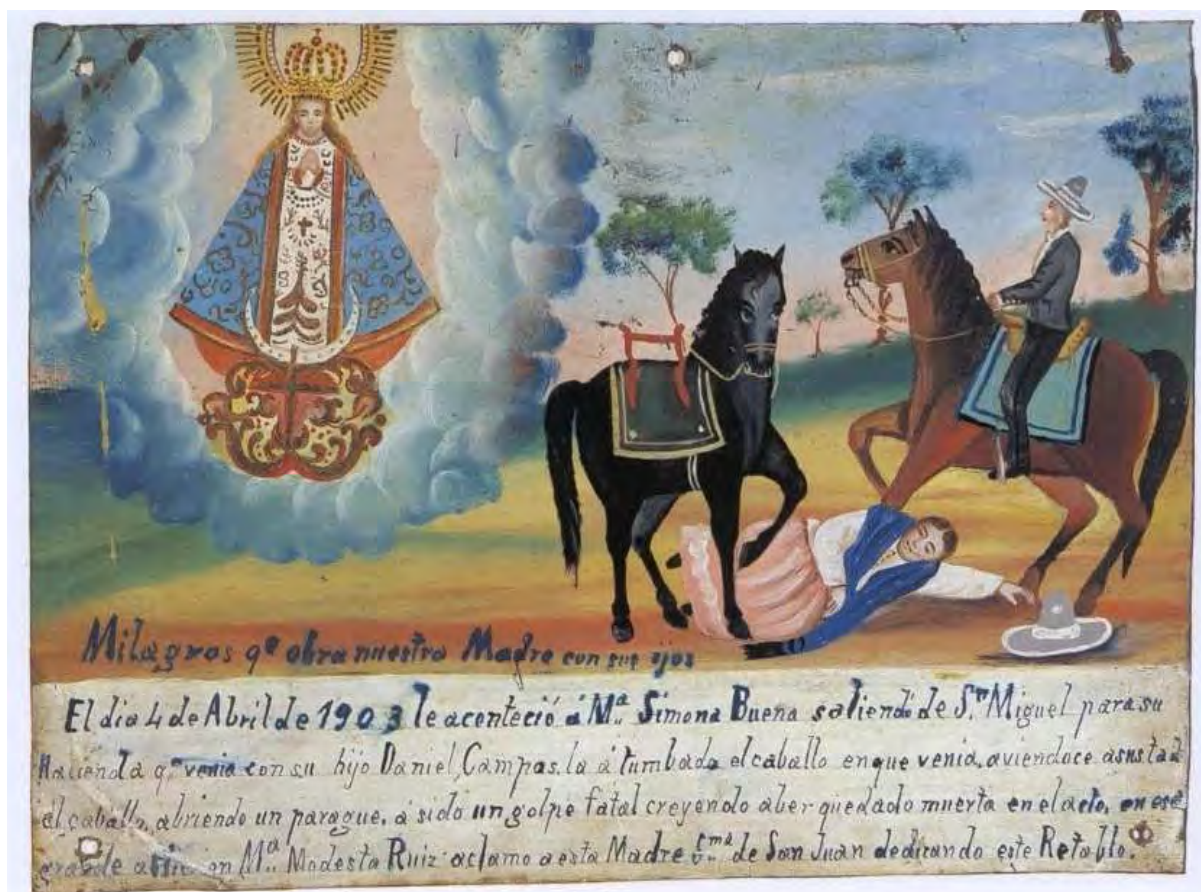 Milagros qᵉ obra nuestra Madre con sus ijos
El dia 4 de Abril de 1903 le aconteció á Mª. Simona Buena saliendo de Sⁿ Miguel para su
Hacienda qᵉ venia con su hijo Daniel Campas. la á tumbado el caballo en que venia, aviendoce asustad
el caballo, abriendo un parague, á sido un golpe fatal creyendo aber quedado muerta en el acto, en ese
grande Mª. Modesta Ruiz aclamo a esta Madre Sᵐᵃ de San Juan dedicando este Retablo.